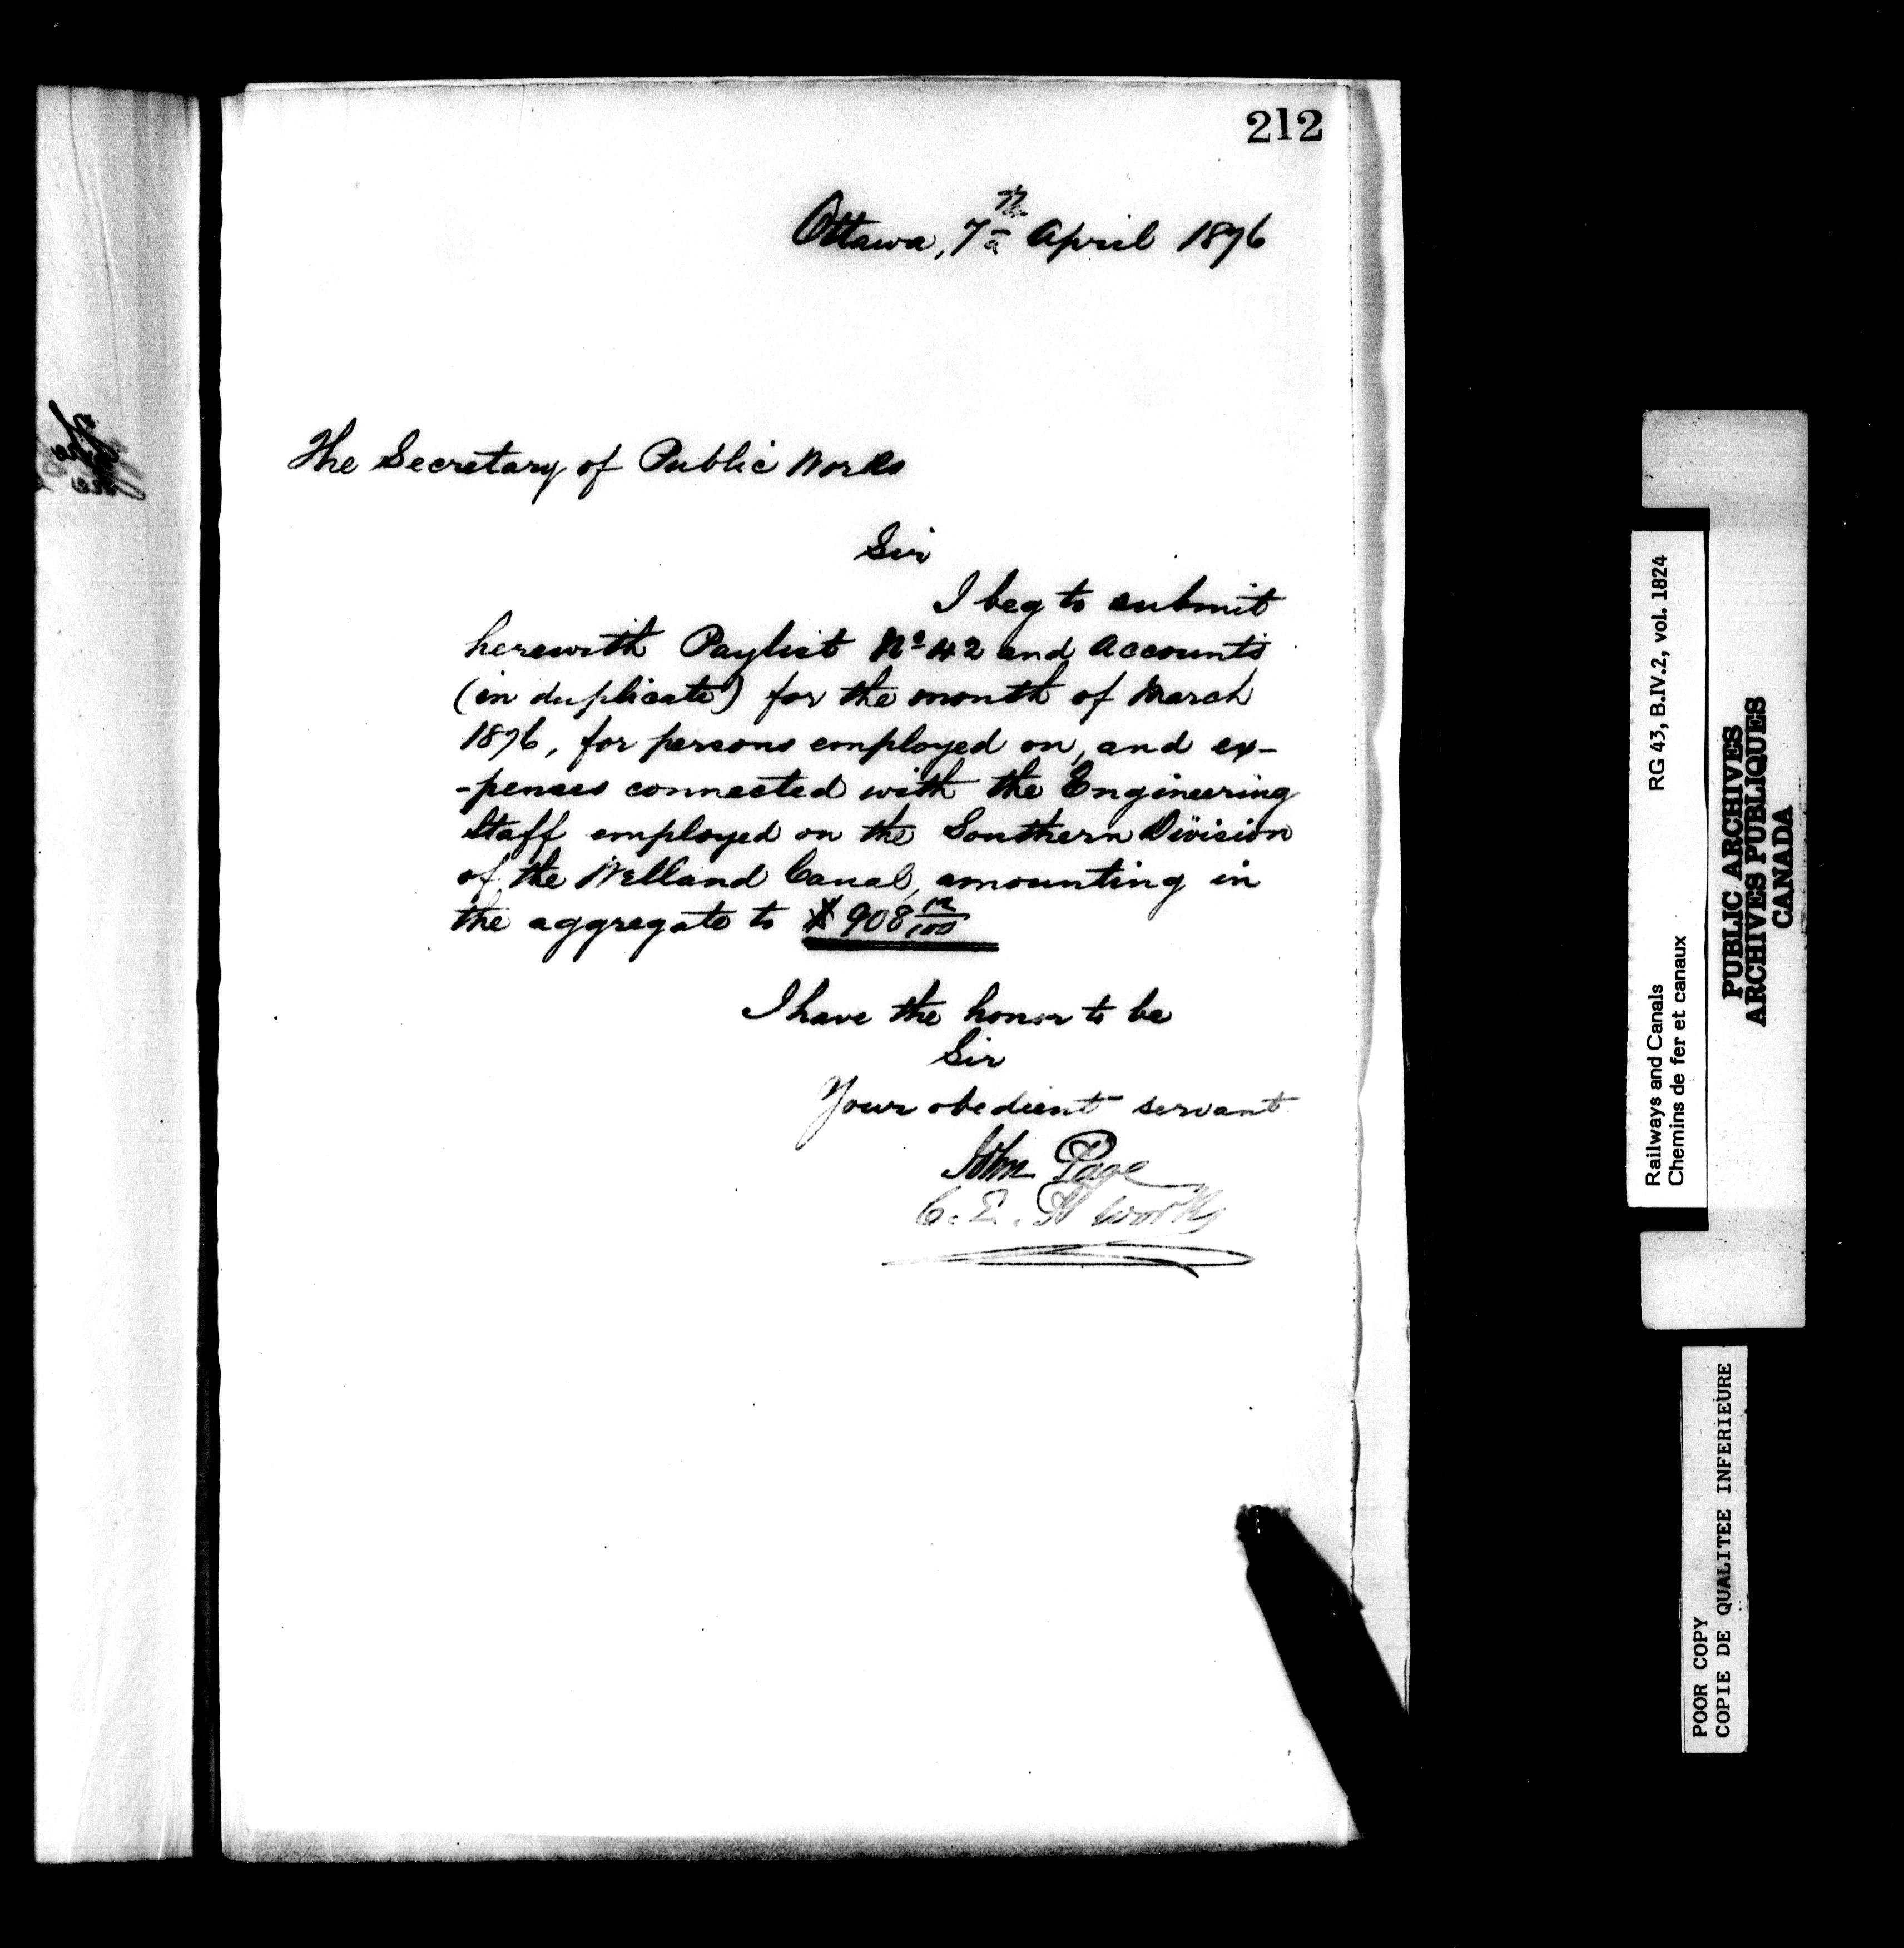 212
Ottawa, 7th April 1876
The Secretary of Public Works
Sir
I beg to submit
herewith Paylist No 42 and Accounts
(in duplicate) for the month of March
1876, for persons employed on, and ex-
-penses connected with the Engineering
Staff employed on the Southern Division
of the Welland Canal, amounting in
the aggregate to $908 12/100
I have the honor to be
Sir
Your obedient servant
John Page
C. E. P Works
Railways and Canals RG 43, B.IV.2, vol. 1824
Chemins de fer et canaux
PUBLIC ARCHIVES
ARCHIVES PUBLIQUES
CANADA
POOR COPY
COPIE DE QUALITEE INFERIEURE